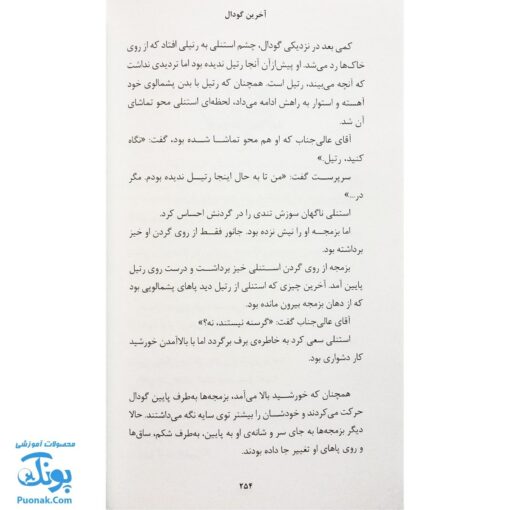 آخرین گودال
کمی بعد در نزدیکی گودال، چشم استنلی به رتیلی افتاد که از روی
خاک‌ها رد می‌شد. او پیش‌ازآن آنجا رتیل ندیده بود اما تردیدی نداشت
که آنچه می‌بیند، رتیل است. همچنان که رتیل با بدن پشمالوی خود
آهسته و استوار به راهش ادامه می‌داد، لحظه‌ای استنلی محو تماشای
آن شد.
آقای عالی‌جناب که او هم محو تماشا شده بود، گفت: «نگاه
کنید، رتیل.»
سرپرست گفت: «من تا به حال اینجا رتیل ندیده بودم. مگر
در...»
استنلی ناگهان سوزش تندی را در گردنش احساس کرد.
اما بزمجه او را نیش نزده بود. جانور فقط از روی گردن او خیز
برداشته بود.
بزمجه از روی گردن استنلی خیز برداشت و درست روی رتیل
پایین آمد. آخرین چیزی که استنلی از رتیل دید پاهای پشمالویی بود
که از دهان بزمجه بیرون مانده بود.
آقای عالی‌جناب گفت: «گرسنه نیستند، نه؟»
استنلی سعی کرد به خاطره‌ی برف برگردد اما با بالاآمدن خورشید
کار دشواری بود.
همچنان که خورشید بالا می‌آمد، بزمجه‌ها به‌طرف پایین گودال
حرکت می‌کردند و خودشان را بیشتر توی سایه نگه می‌داشتند. حالا
دیگر بزمجه‌ها به جای سر و شانه‌ی او به پایین، به‌طرف شکم، ساق‌ها
و روی پاهای او تغییر جا داده بودند.
۲۵۴
محصولات آموزشی
پونک
Puonak.Com